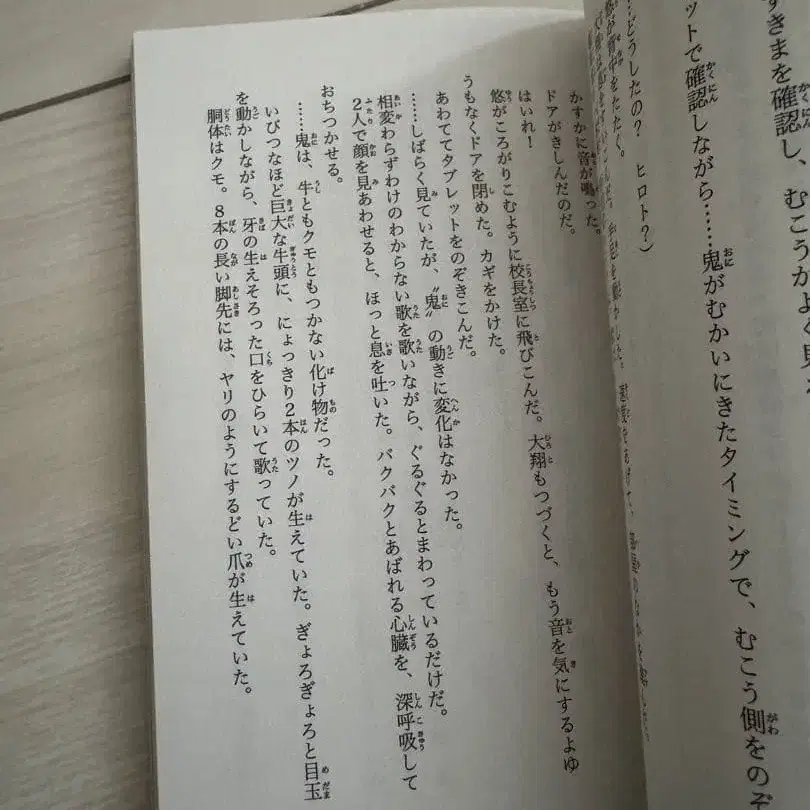 すきまを確認し、むこうがよく見
ットで確認しながら……鬼がむかいにきたタイミングで、むこう側をのぞ
……どうしたの？　ヒロト？）
悠が背中をたたく。
かすかに音が鳴った。
ドアがきしんだのだ。
はいれ！
悠がころがりこむように校長室に飛びこんだ。大翔もつづくと、もう音を気にするよゆ
うもなくドアを閉めた。カギをかけた。
あわててタブレットをのぞきこんだ。
……しばらく見ていたが、〝鬼〟の動きに変化はなかった。
相変わらずわけのわからない歌を歌いながら、ぐるぐるとまわっているだけだ。
２人で顔を見あわせると、ほっと息を吐いた。バクバクとあばれる心臓を、深呼吸して
おちつかせる。
……鬼は、牛ともクモともつかない化け物だった。
いびつなほど巨大な牛頭に、にょっきり２本のツノが生えていた。ぎょろぎょろと目玉
を動かしながら、牙の生えそろった口をひらいて歌っていた。
胴体はクモ。８本の長い脚先には、ヤリのようにするどい爪が生えていた。